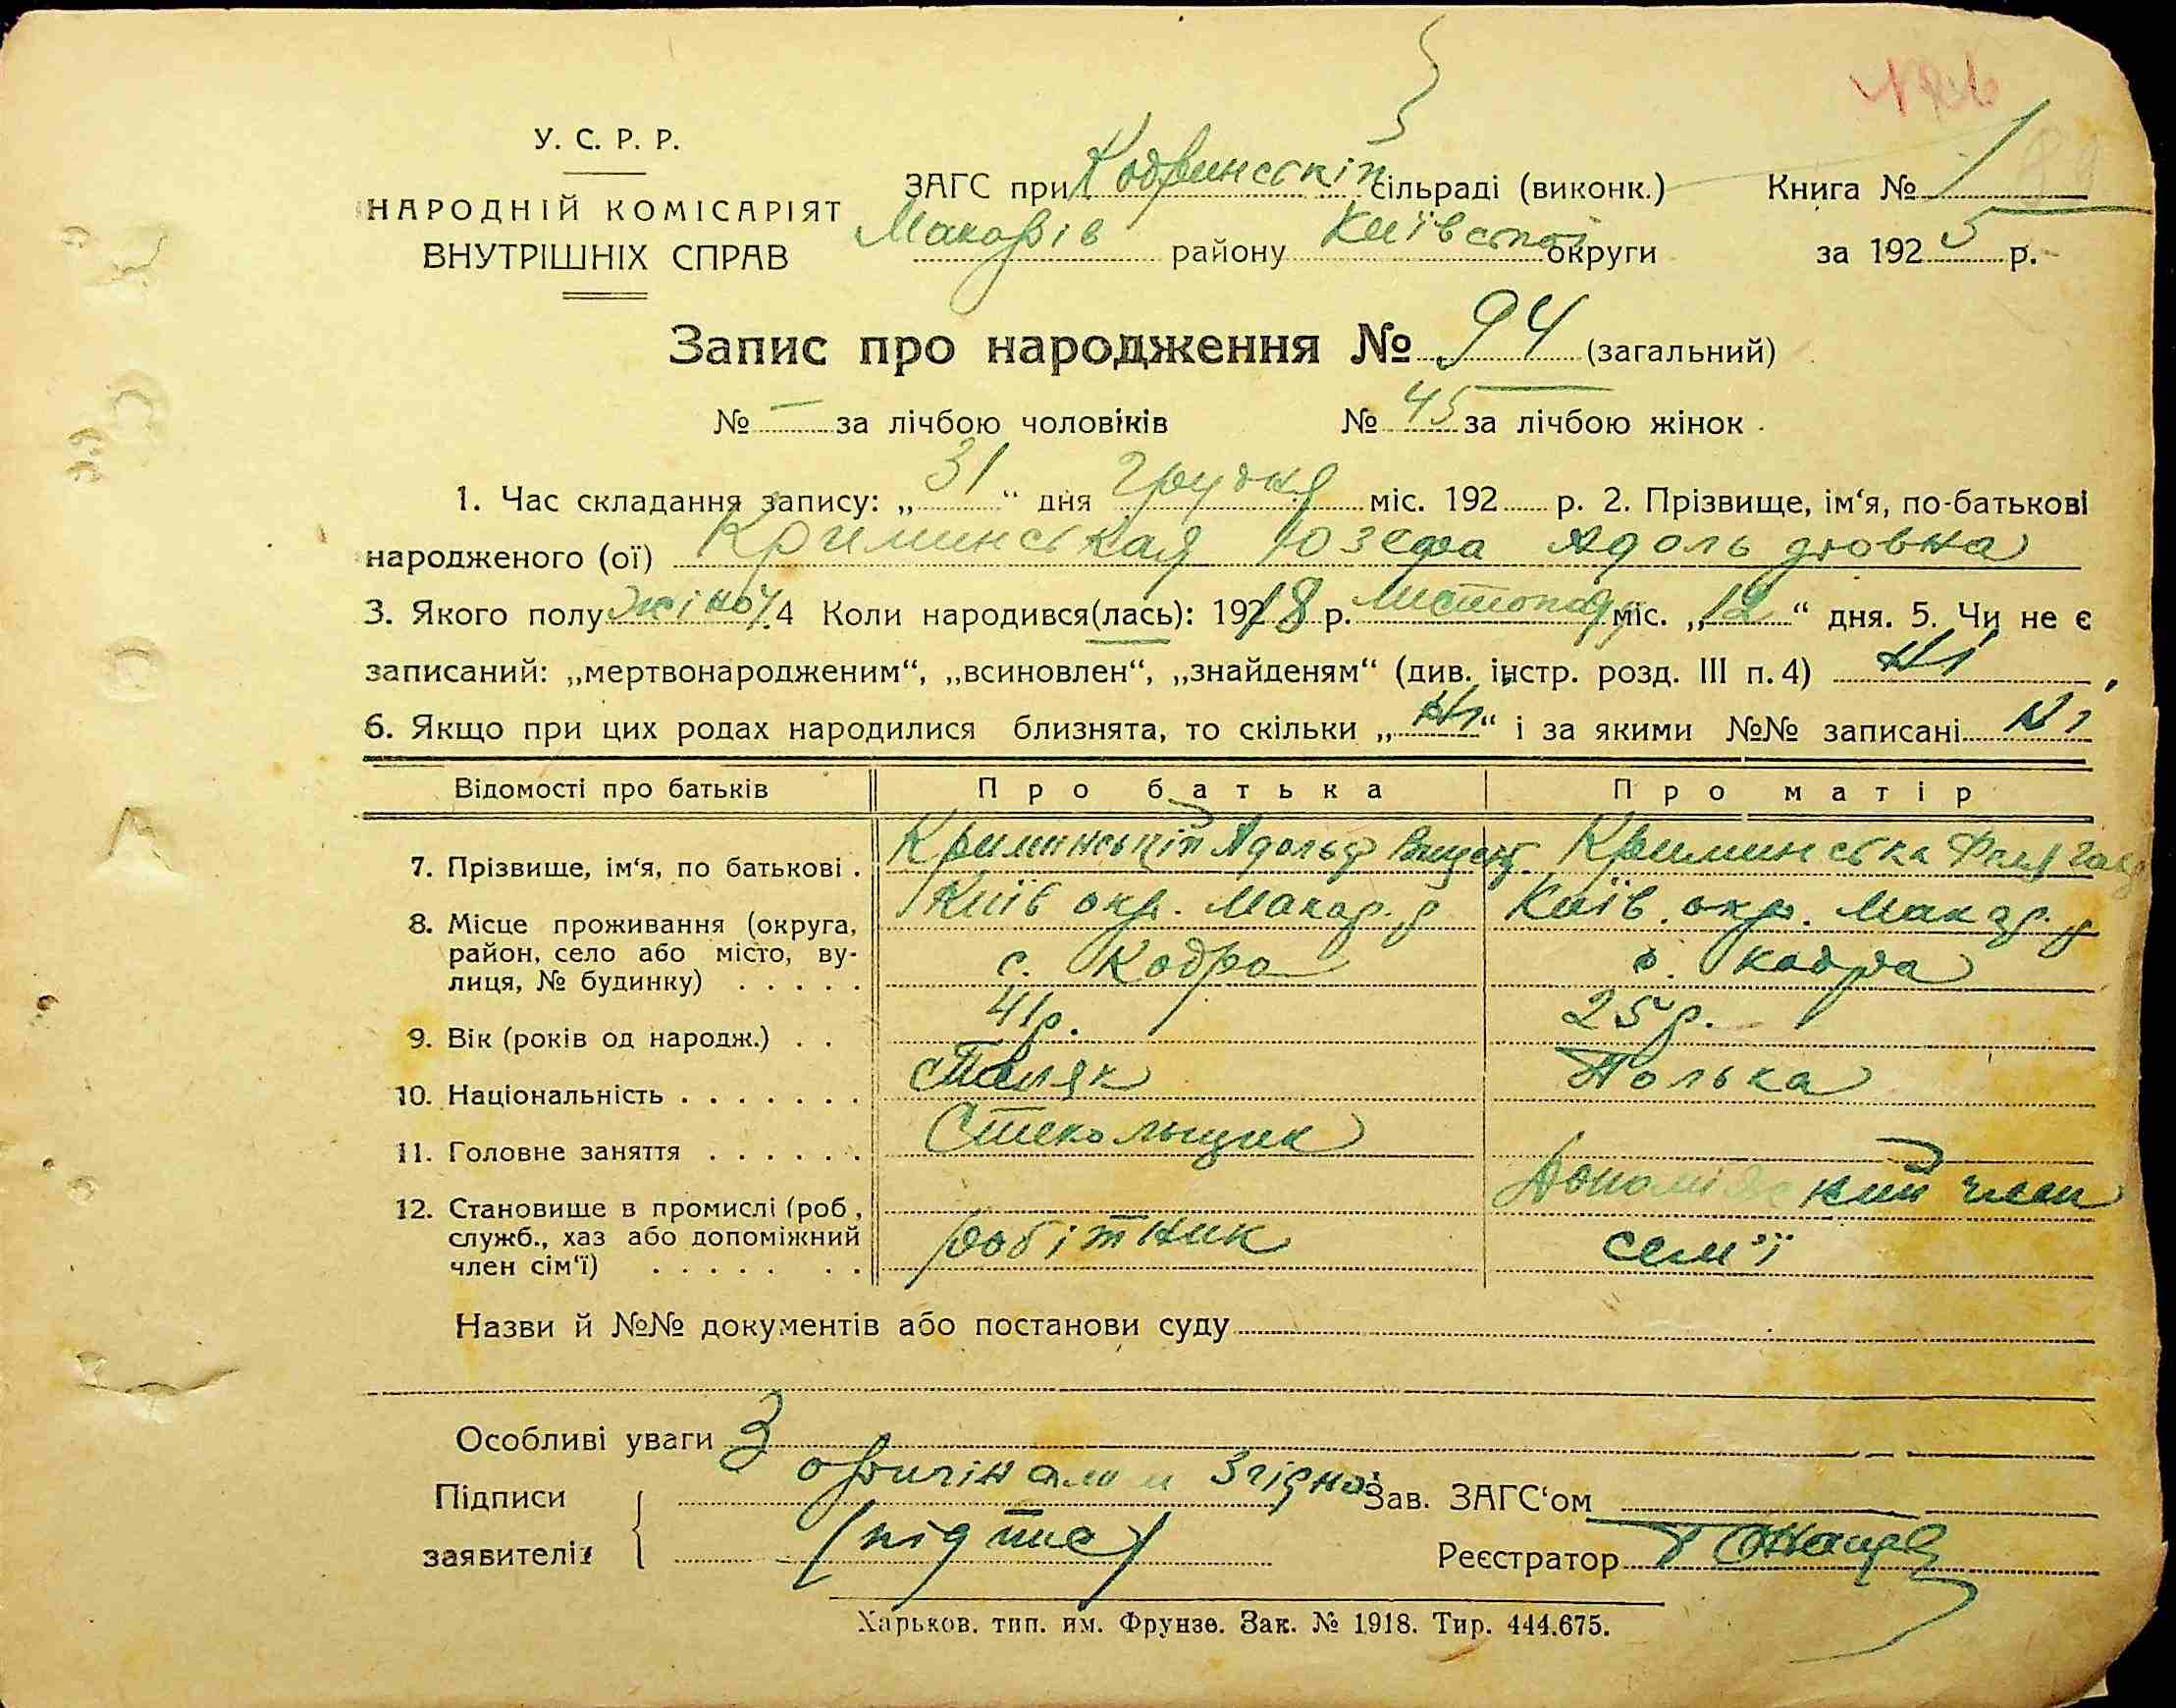 У. С. Р. Р.
НАРОДНІЙ КОМІСАРІЯТ
ВНУТРІШНІХ СПРАВ
ЗАГС при Кодринській сільраді (виконк.)
Макарів району Київської округи
Книга № 1
за 1925 р.
Запис про народження № 94 (загальний)
№ — за лічбою чоловіків № 45 за лічбою жінок
1. Час складання запису: „31“ дня Грудня міс. 192 р. 2. Прізвище, ім‘я, по-батькові
народженого (ої) Криминськая Юзефа Адольфовна
3. Якого полу жіноч. 4 Коли народився(лась): 1918 р. листопаду міс. „12“ дня. 5. Чи не є
записаний: „мертвонародженим“, „всиновлен“, „знайденям“ (див. інстр. розд. III п. 4) Ні
6. Якщо при цих родах народилися близнята, то скільки „Ні“ і за якими №№ записані Ні
Відомості про батьків Про батька Про матір
7. Прізвище, ім‘я, по батькові . Криминській Адольф Криминська
8. Місце проживання (округа, район, село або місто, ву-
лиця, № будинку) . . . . . Київ окр. Макар. р Київ. окр. Макар. р
с. Кодра с. Кодра
9. Вік (років од народж.) . . 41р. 25р.
10. Національність . . . . . . . Поляк Полька
11. Головне заняття . . . . . . Стекольщик
12. Становище в промислі (роб., служб., хаз або допоміжний
член сім‘ї) . . . . . . . робітник Допоміжний член
сем'ї
Назви й №№ документів або постанови суду
Особливі уваги З
оригіналом згідно:
Підписи
заявителів
(підпис)
Зав. ЗАГС‘ом
Реєстратор
Харьков. тип. им. Фрунзе. Зак. № 1918. Тир. 444.675.